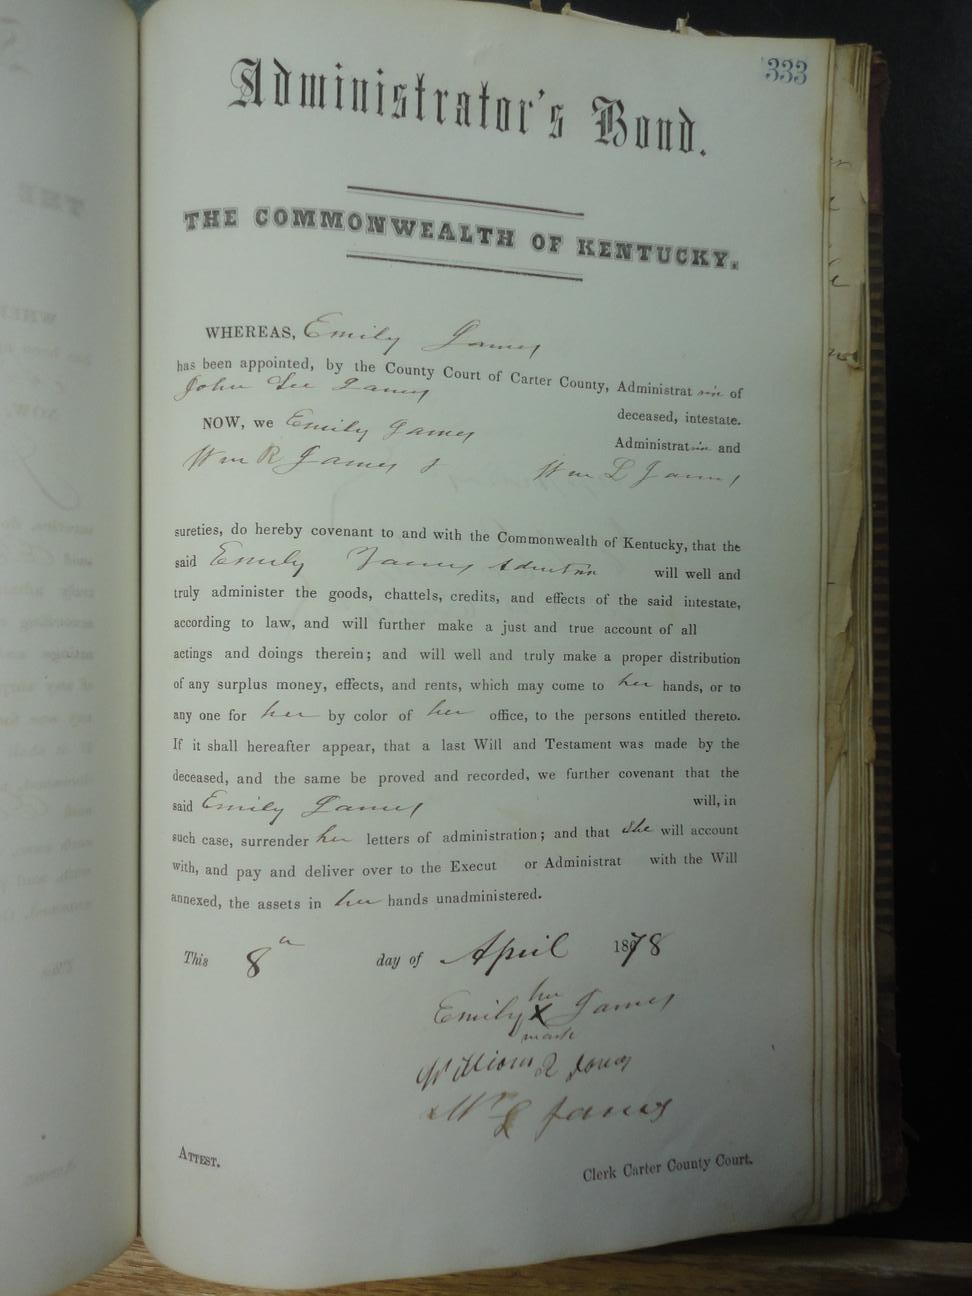 333
Administrator's Bond.
THE COMMONWEALTH OF KENTUCKY.
WHEREAS, Emily James
has been appointed, by the County Court of Carter County, Administratrix of
John Lee James deceased, intestate.
NOW, we Emily James Administratrix and
Wm R James & Wm L James
sureties, do hereby covenant to and with the Commonwealth of Kentucky, that the
said Emily James Admtrix will well and
truly administer the goods, chattels, credits, and effects of the said intestate,
according to law, and will further make a just and true account of all
actings and doings therein; and will well and truly make a proper distribution
of any surplus money, effects, and rents, which may come to her hands, or to
any one for her by color of her office, to the persons entitled thereto.
If it shall hereafter appear, that a last Will and Testament was made by the
deceased, and the same be proved and recorded, we further covenant that the
said Emily James will, in
such case, surrender her letters of administration; and that She will account
with, and pay and deliver over to the Execut or Administrat with the Will
annexed, the assets in her hands unadministered.
This 8th day of April 1878
Emily her X mark James
William R James
Wm L James
ATTEST.
Clerk Carter County Court.